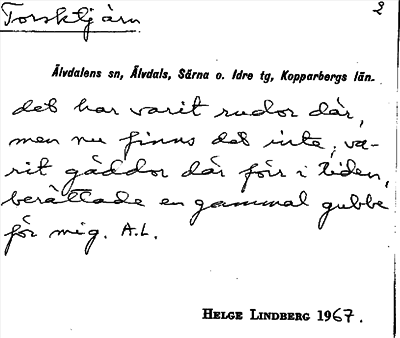 Torsktjärn 2
Älvdalens sn, Älvdals, Särna o. Idre tg, Kopparbergs län.
det har varit rudor där,
men nu finns det inte, va-
rit gäddor där förr i tiden,
berättade en gammal gubbe
för mig. A.L.
HELGE LINDBERG 1967.